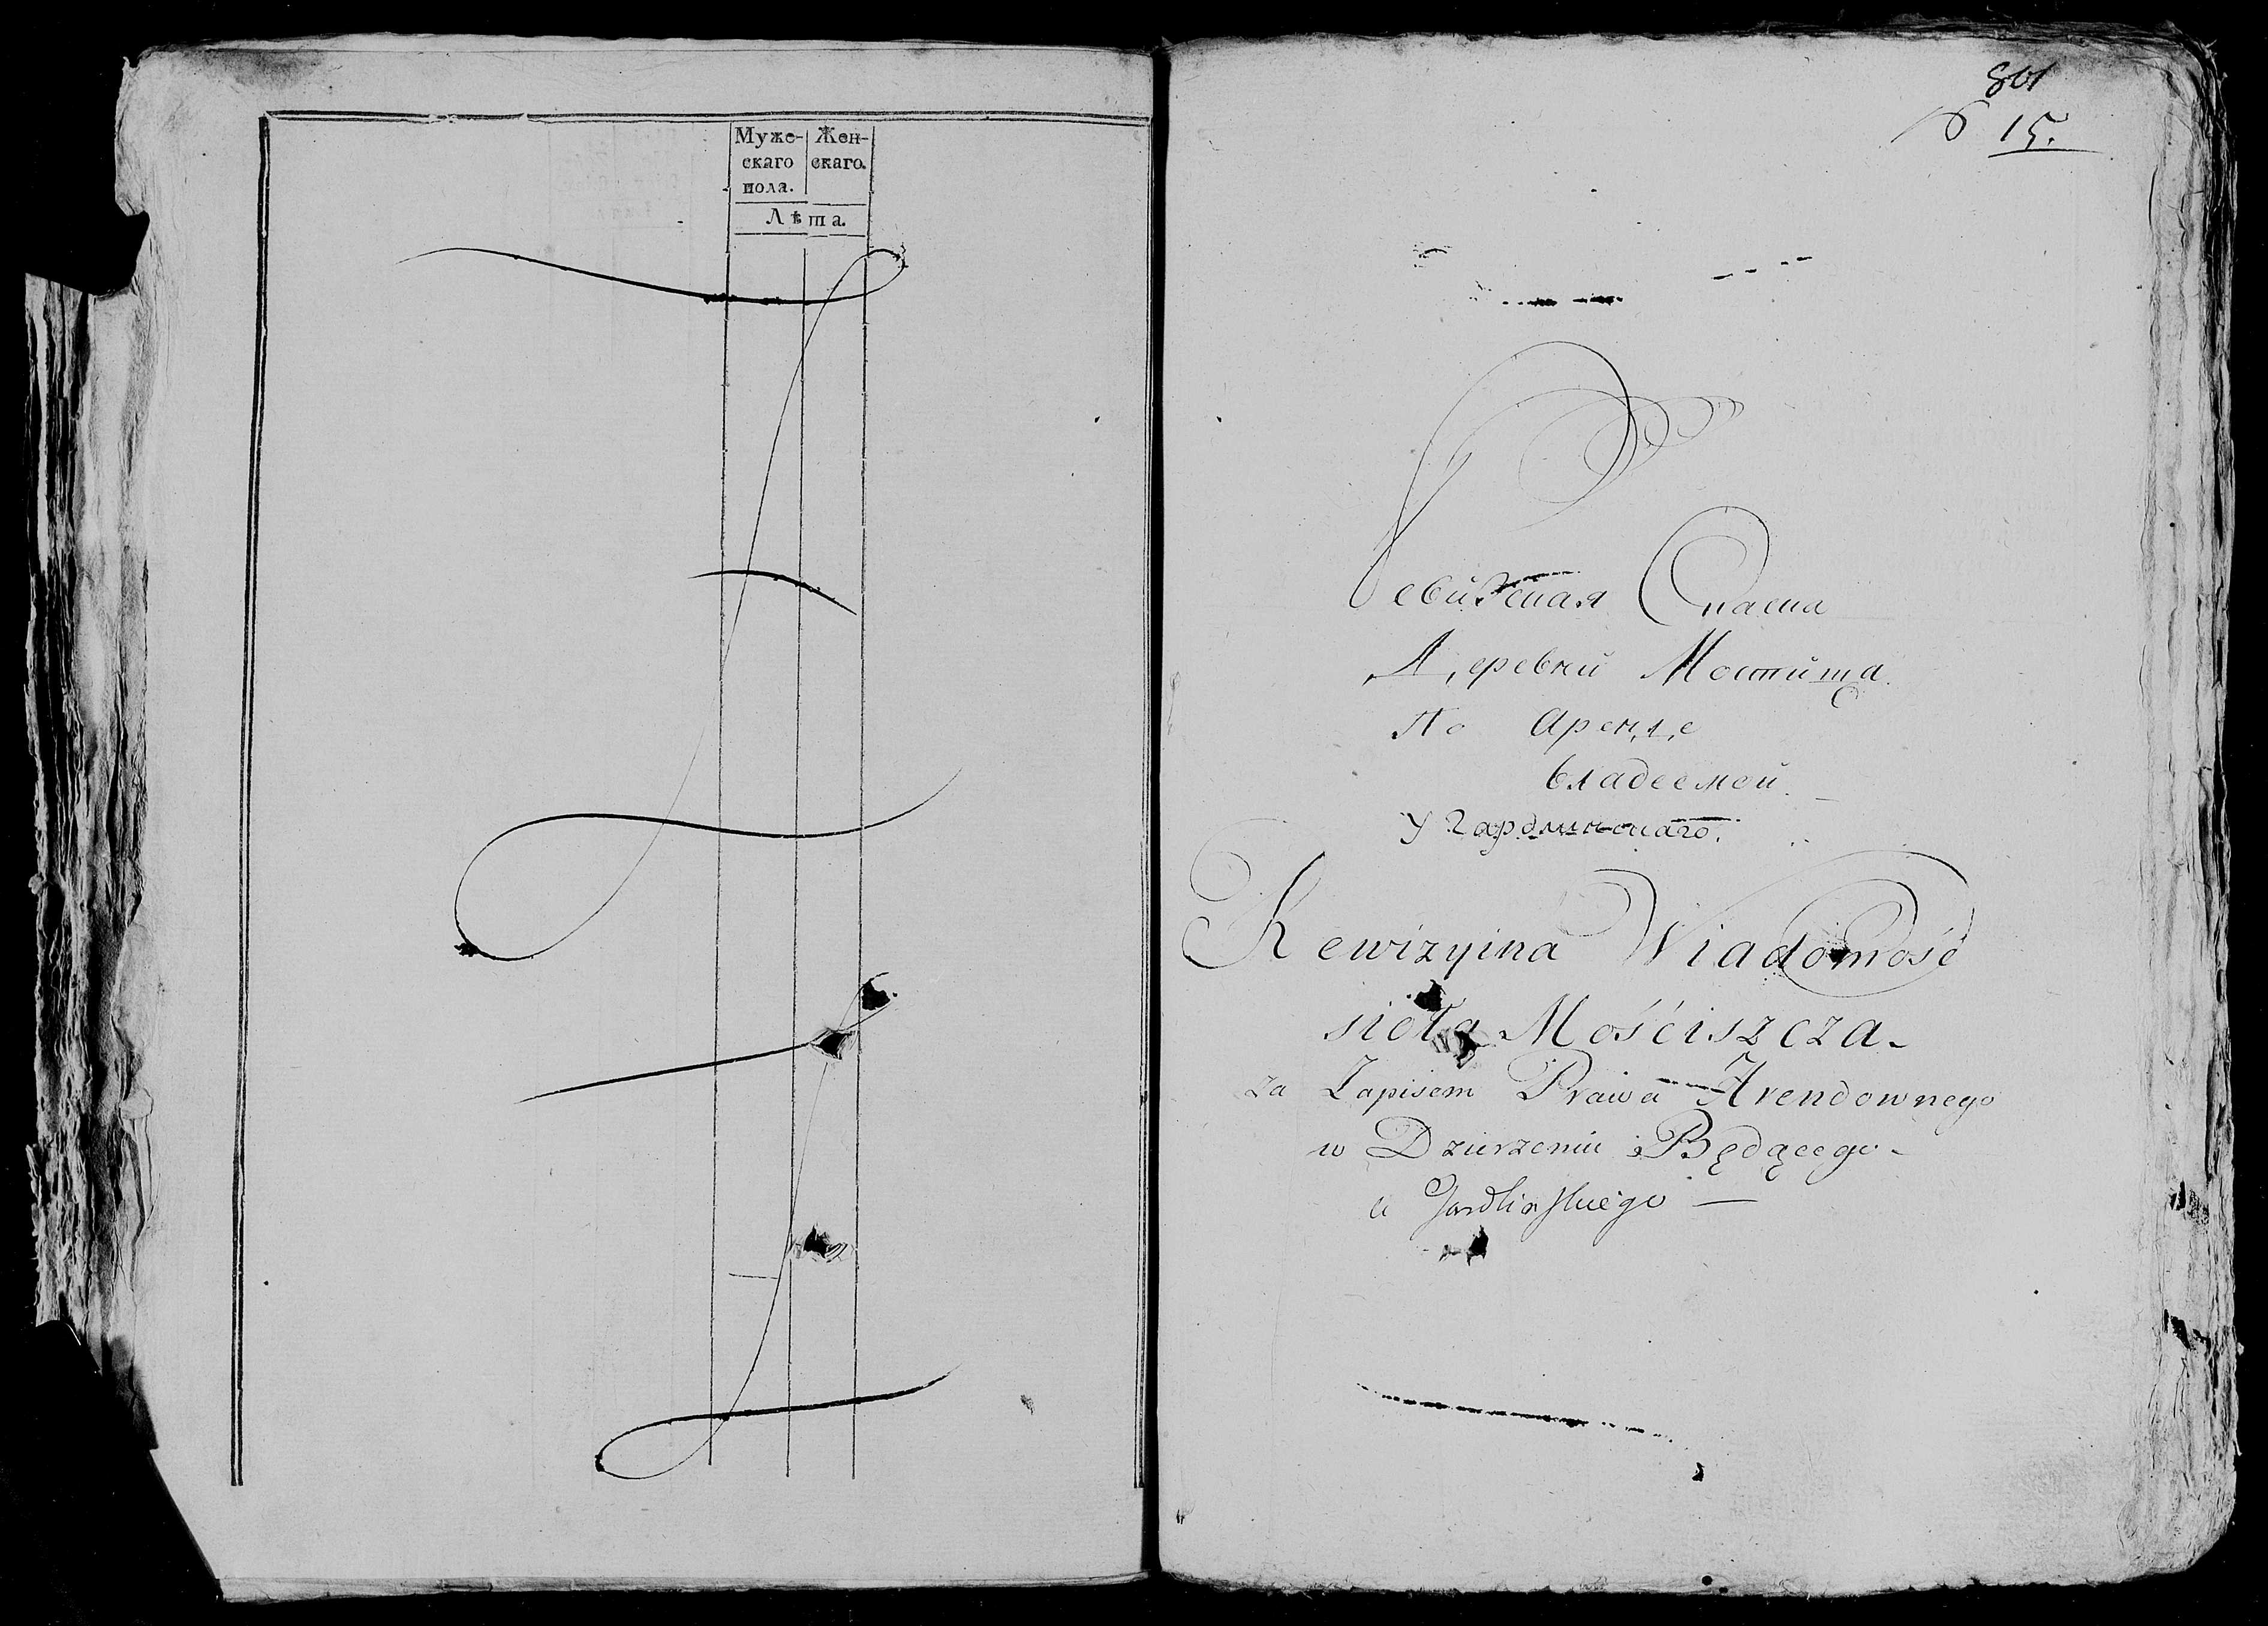 Муже- Жен-
скаго скаго.
пола.
Лѣта.
801
15.
Ревизская Скаска
Деревни Мостища
По Аренде
владеемой
У Гардлинскаго.
Rewizyina Wiadomość
sioła Mościszcza
za Zapisem Prawa Arendownego
w Dzierzeniu Będącego
u Jardlinskiego